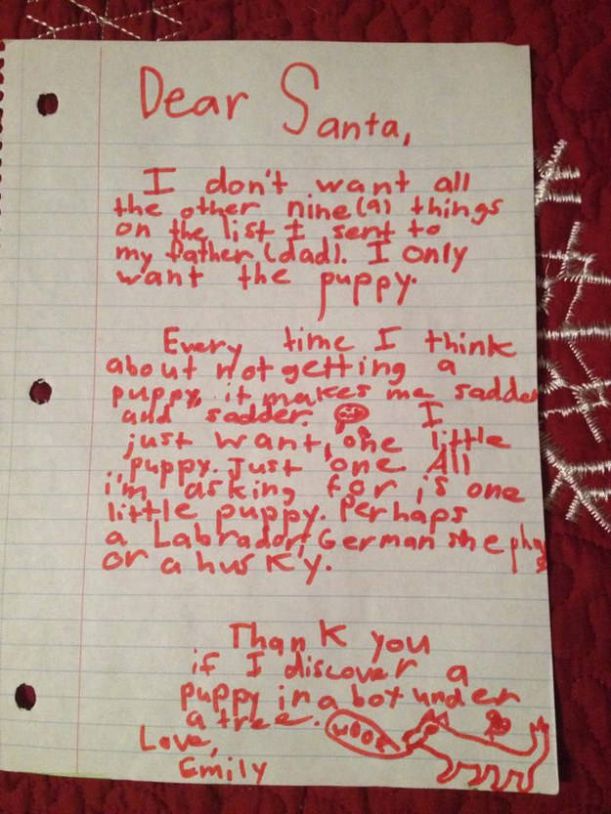 Dear Santa,
I don't want all
the other nine (9) things
on the list I sent to
my father (dad). I only
want the puppy.
Every time I think
about not getting a
puppy, it makes me sadder
and sadder. I
just want, one little
puppy. Just one. All
i'm asking for is one
little puppy. Perhaps
a Labrador, German
or a husky.
Thank you
if I discover a
puppy in a box under
a tree.
woof
Love,
Emily